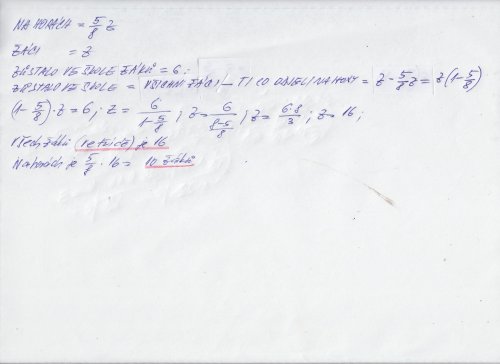 NA HORÁCH = 5/8 z
ŽÁCI = z
ZŮSTALO VE ŠKOLE ŽÁKŮ = 6;
ZŮSTALO VE ŠKOLE = VŠICHNI ŽÁCI - TI CO ODJELI NA HORY = z - 5/8 z = z(1 - 5/8)
(1 - 5/8) · z = 6; z = 6/(1 - 5/8); z = 6/((8-5)/8); z = 6·8/3; z = 16;
Všech žáků je 16
Na horách je 5/8 · 16 = 10 žáků